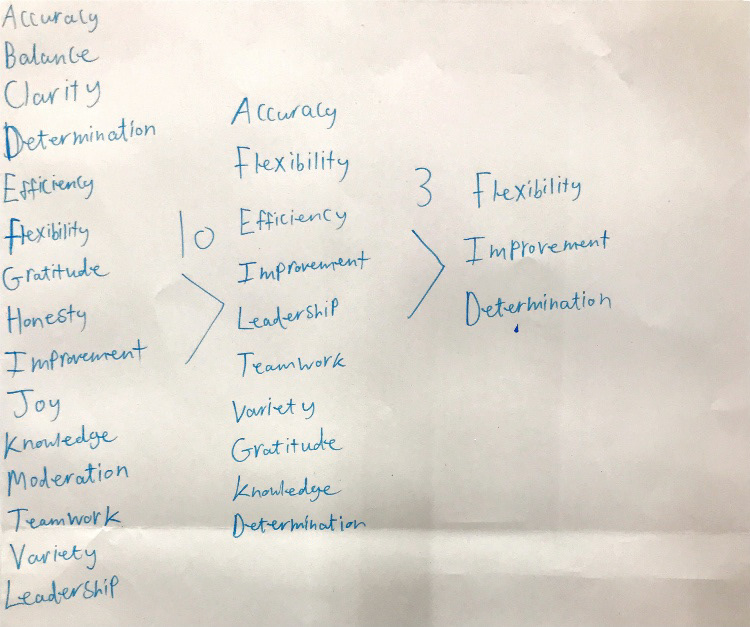 Accuracy
Balance
Clarity
Determination
Efficiency
flexibility
Gratitude
Honesty
Improvement
Joy
Knowledge
Moderation
Teamwork
Variety
Leadership
10
Accuracy
Flexibility
Efficiency
Improvement
Leadership
Teamwork
Variety
Gratitude
Knowledge
Determination
3
Flexibility
Improvement
Determination